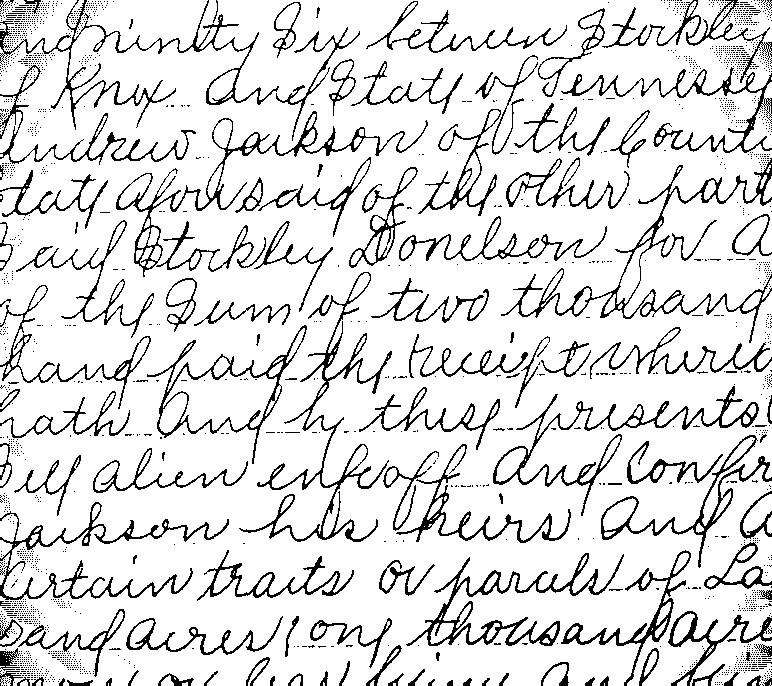 and ninity Six between Stockley
of Knox and State of Tennessey
Andrew Jackson of the Counti
tate aforesaid of the other part
Said Stockley Donelson for a
of the Sum of two thousand
hand paid the receipt where
hath and by these presents
Sell alien enfeoff and Confir
Jackson his heirs and a
Certain tracts or parcels of La
sand acres one thousand acre
more or less being and